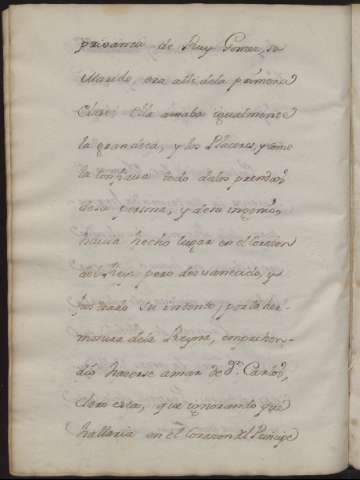 privanza de Ruy Gomez, su
Marido, era alli dela primera
Clase; Ella amaba igualmente
la grandeza, y los Placeres, y como
la todo delas prendas
desu persona, y desu ingenio,
havia hecho lugar en el Corazon
del Rey, pero desvanecido, y
frustrado su intento, por la her-
mosura dela Reyna, emprehen-
dio hacerse amar de Dn. Carlos,
claro esta, que ignorando que
hallaria en el Corazon del Principe